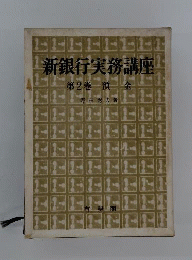 新銀行実務講座
第2巻 預金
有斐閣